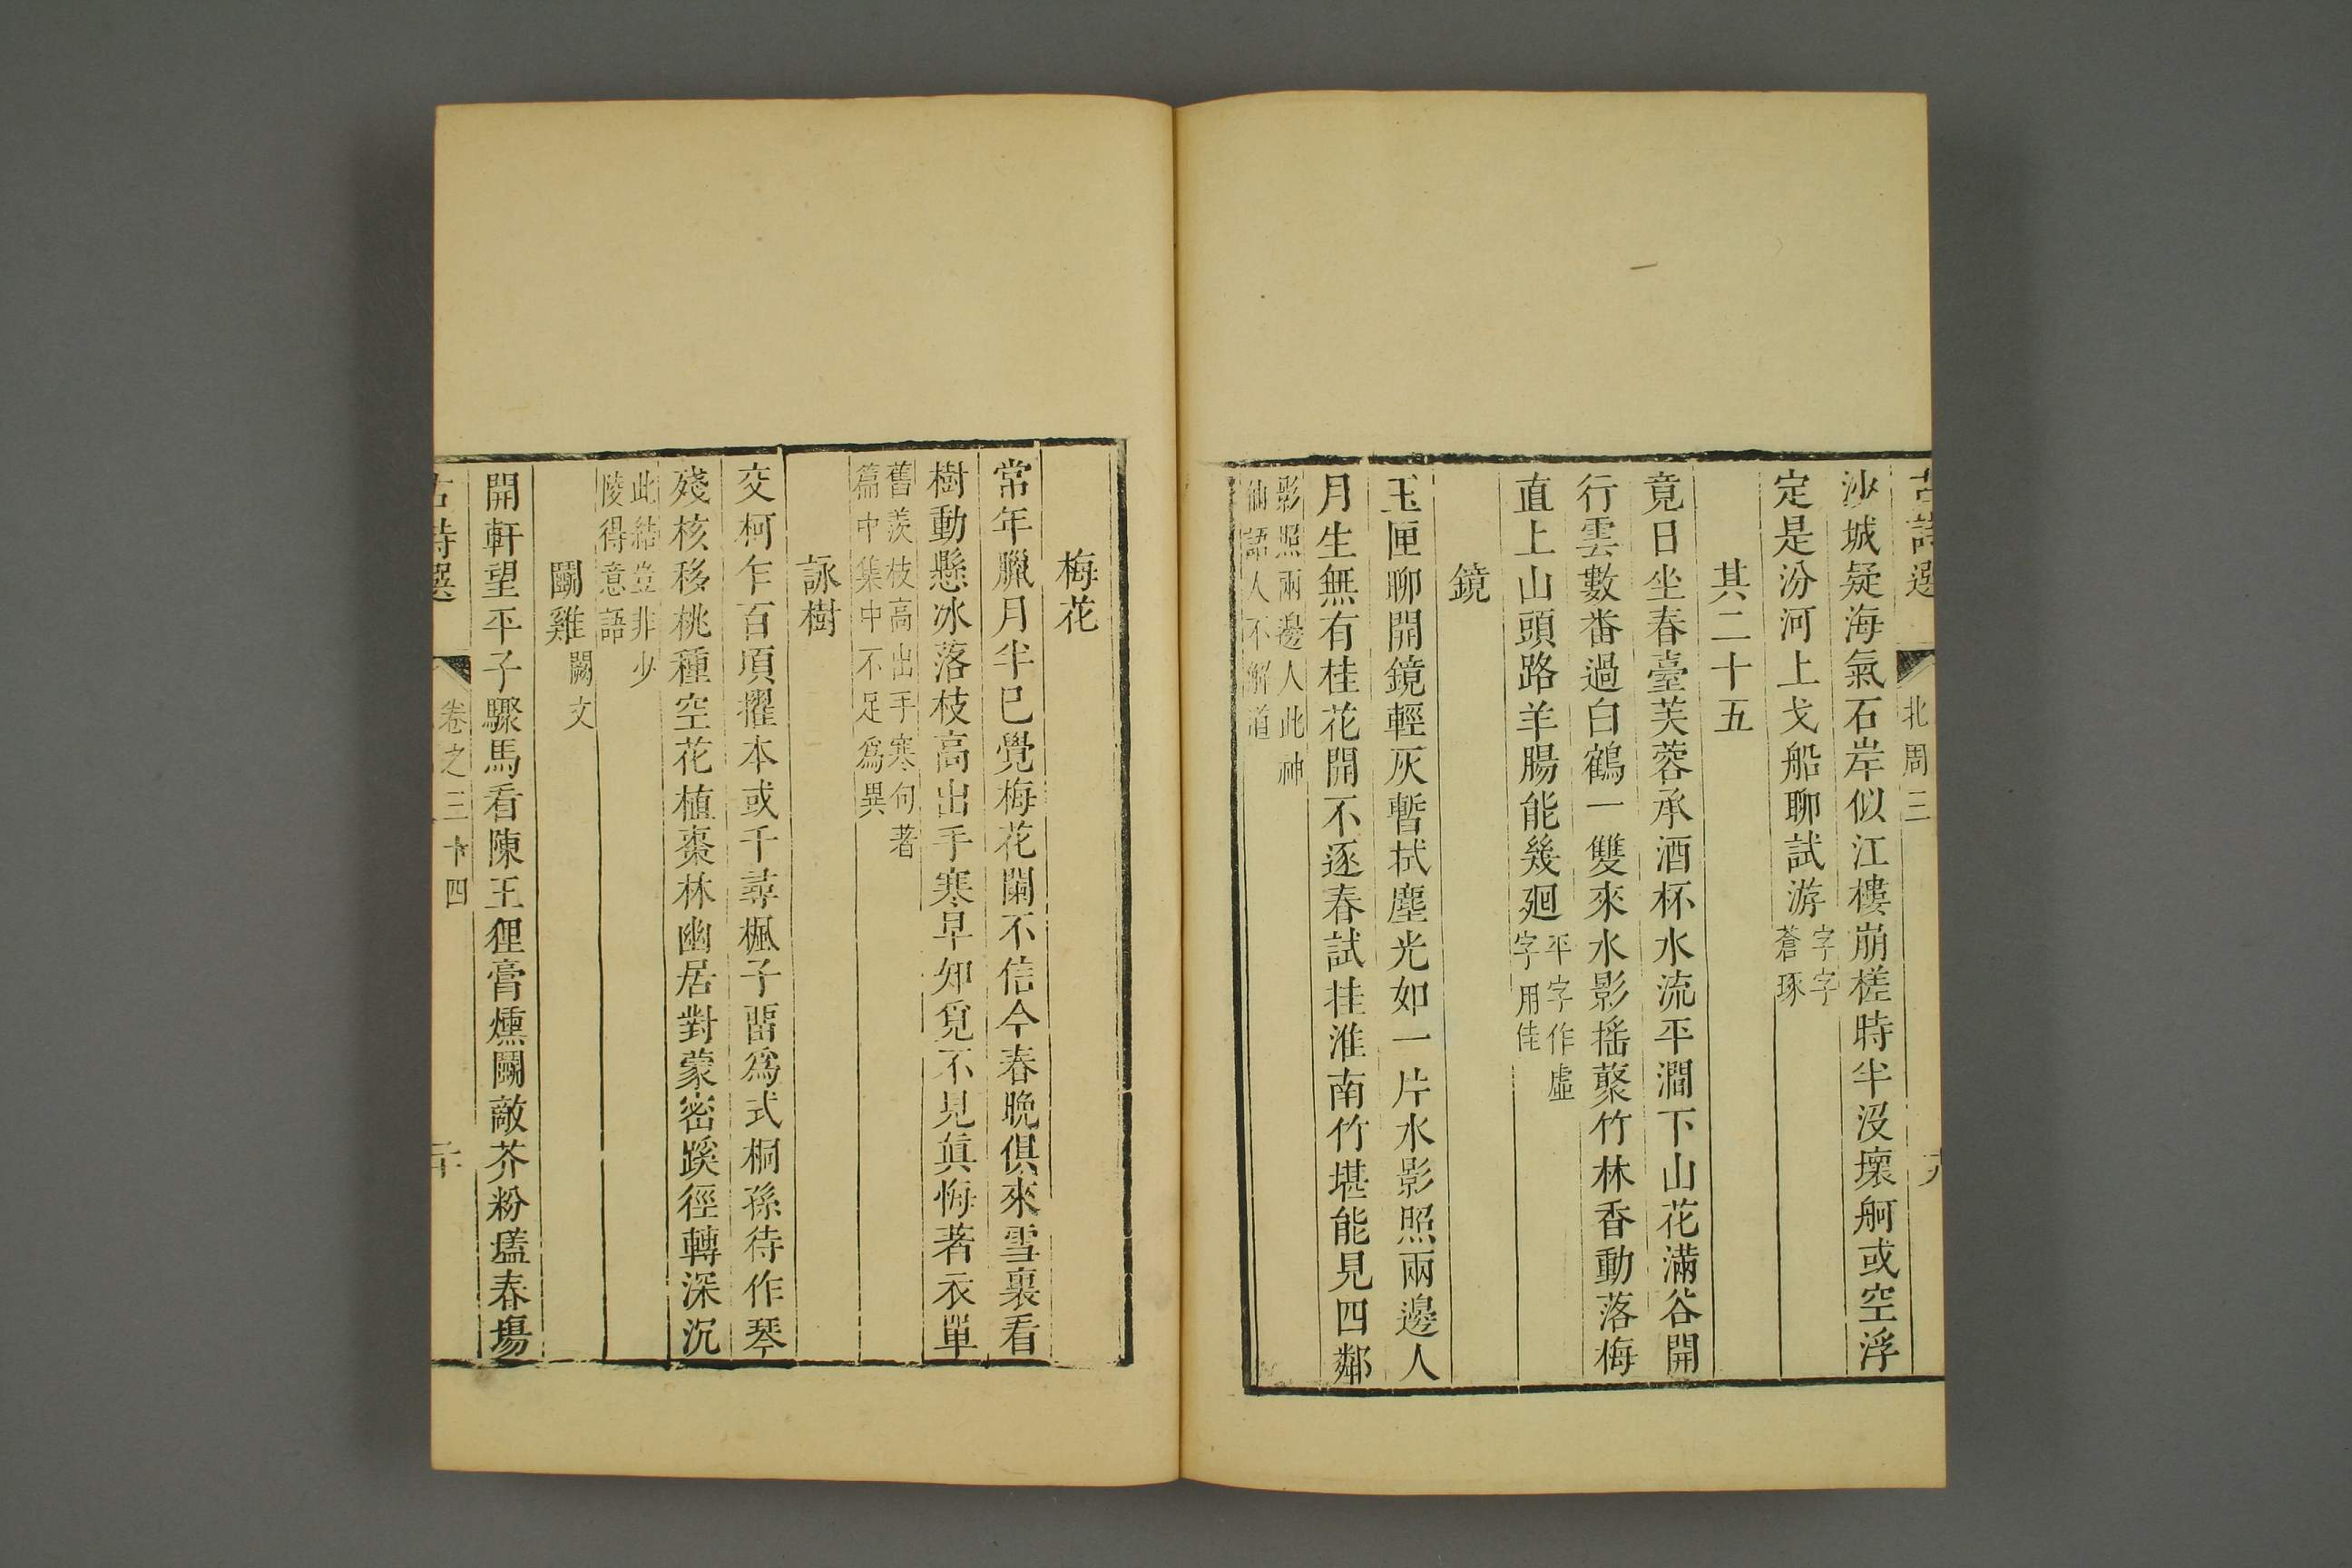 古詩選 北周三
沙城疑海氣石岸似江樓崩槎時半没壞舸或空浮
定是汾河上戈船聊試游字字蒼琢
其二十五
竟日坐春臺芙蓉承酒杯水流平澗下山花滿谷開
行雲數番過白鶴一雙來水影搖藂竹林香動落梅
直上山頭路羊腸能幾廻平字作虛字用佳
鏡
玉匣聊開鏡輕灰暫拭塵光如一片水影照兩邊人
月生無有桂花開不逐春試挂淮南竹堪能見四鄰
影照兩邊人此神
仙語人不解道
梅花
常年臘月半已覺梅花闌不信今春晚俱來雪裏看
樹動懸冰落枝高出手寒早知覓不見眞悔著衣單
舊羨枝高出手寒句著
篇中集中不足爲異
詠樹
交柯乍百頃擢本或千尋楓子畱爲式桐孫待作琴
殘核移桃種空花植棗林幽居對蒙密蹊徑轉深沉
此結並非少
陵得意語
鬭雞闕文
開軒望平子驟馬看陳王狸膏燻鬭敵芥粉壒春場
古詩選 卷之三十四 二十